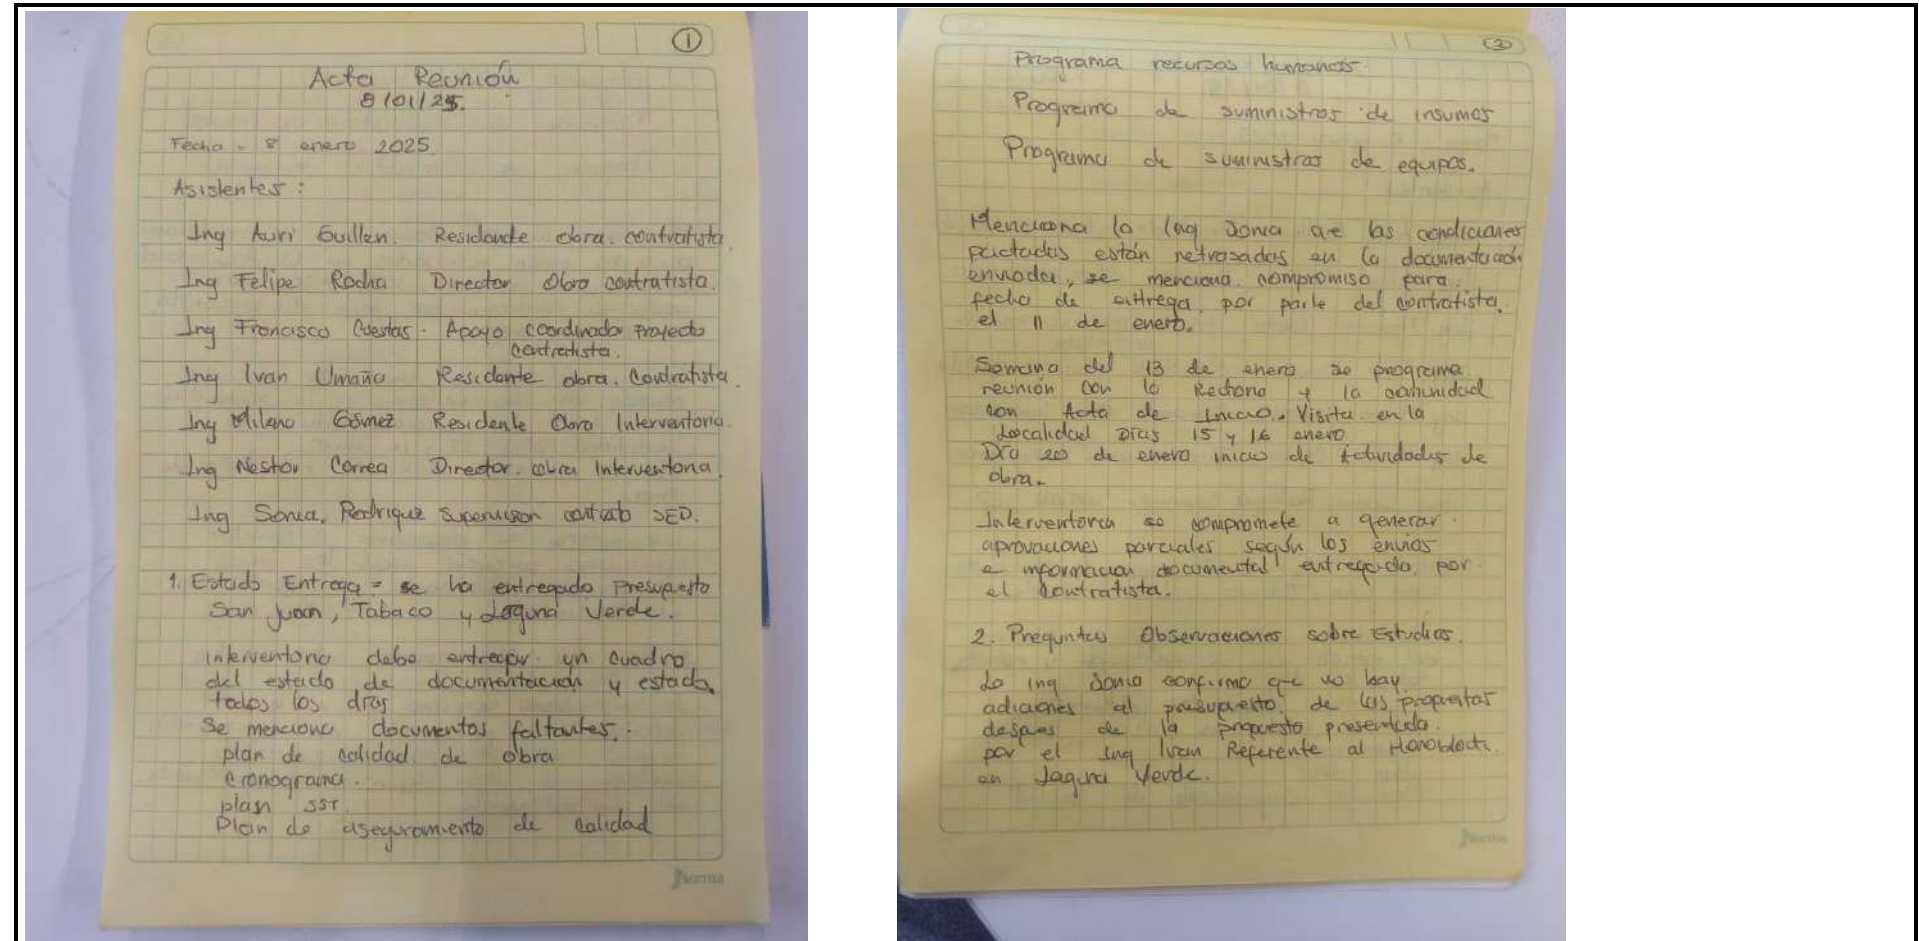 1
Acta Reunión
8/01/25.
Fecha - 8 enero 2025.
Asistentes :
Ing Auri Guillen. Residente obra. contratista.
Ing Felipe Rocha Director Obra contratista.
Ing Francisco Cuestas - Apoyo coordinador proyecto
contratista.
Ing Ivan Umaña Residente obra. Contratista.
Ing Milano Gómez Residente Obra Interventoria.
Ing Nestor Correa Director. obra Interventoria.
Ing Sonia, Rodriguez supervision contrato SED.
1. Estado Entrega = se ha entregado presupuesto
San Juan, Tabaco y Laguna Verde.
interventoria debe entregar un cuadro
del estado de documentación y estado,
todos los días
Se menciona documentos faltantes.
plan de calidad de obra
cronograma.
plan SST.
Plan de aseguramiento de calidad
Norma
2
Programa recursos humanos.
Programa de suministros de insumos
Programa de suministros de equipos.
Menciona la Ing Sonia que las condiciones
pactadas están retrasadas en la documentación
enviada, se menciona compromiso para
fecha de entrega por parte del contratista.
el 11 de enero.
Semana del 13 de enero se programa
reunión con la Rectora y la comunidad
con Acta de Inicio. Visita en la
Localidad Días 15 y 16 enero.
Día 20 de enero inicio de Actividades de
obra.
Interventoria se compromete a generar
aprovaciones parciales según los envios
e informacion documental entregada por
el contratista.
2. Preguntas Observaciones sobre Estudios.
La ing Sonia confirma que no hay
adiciones al presupuesto. de las propuestas
despues de la propuesta presentada.
por el Ing Ivan Referente al
en Laguna Verde.
Norma